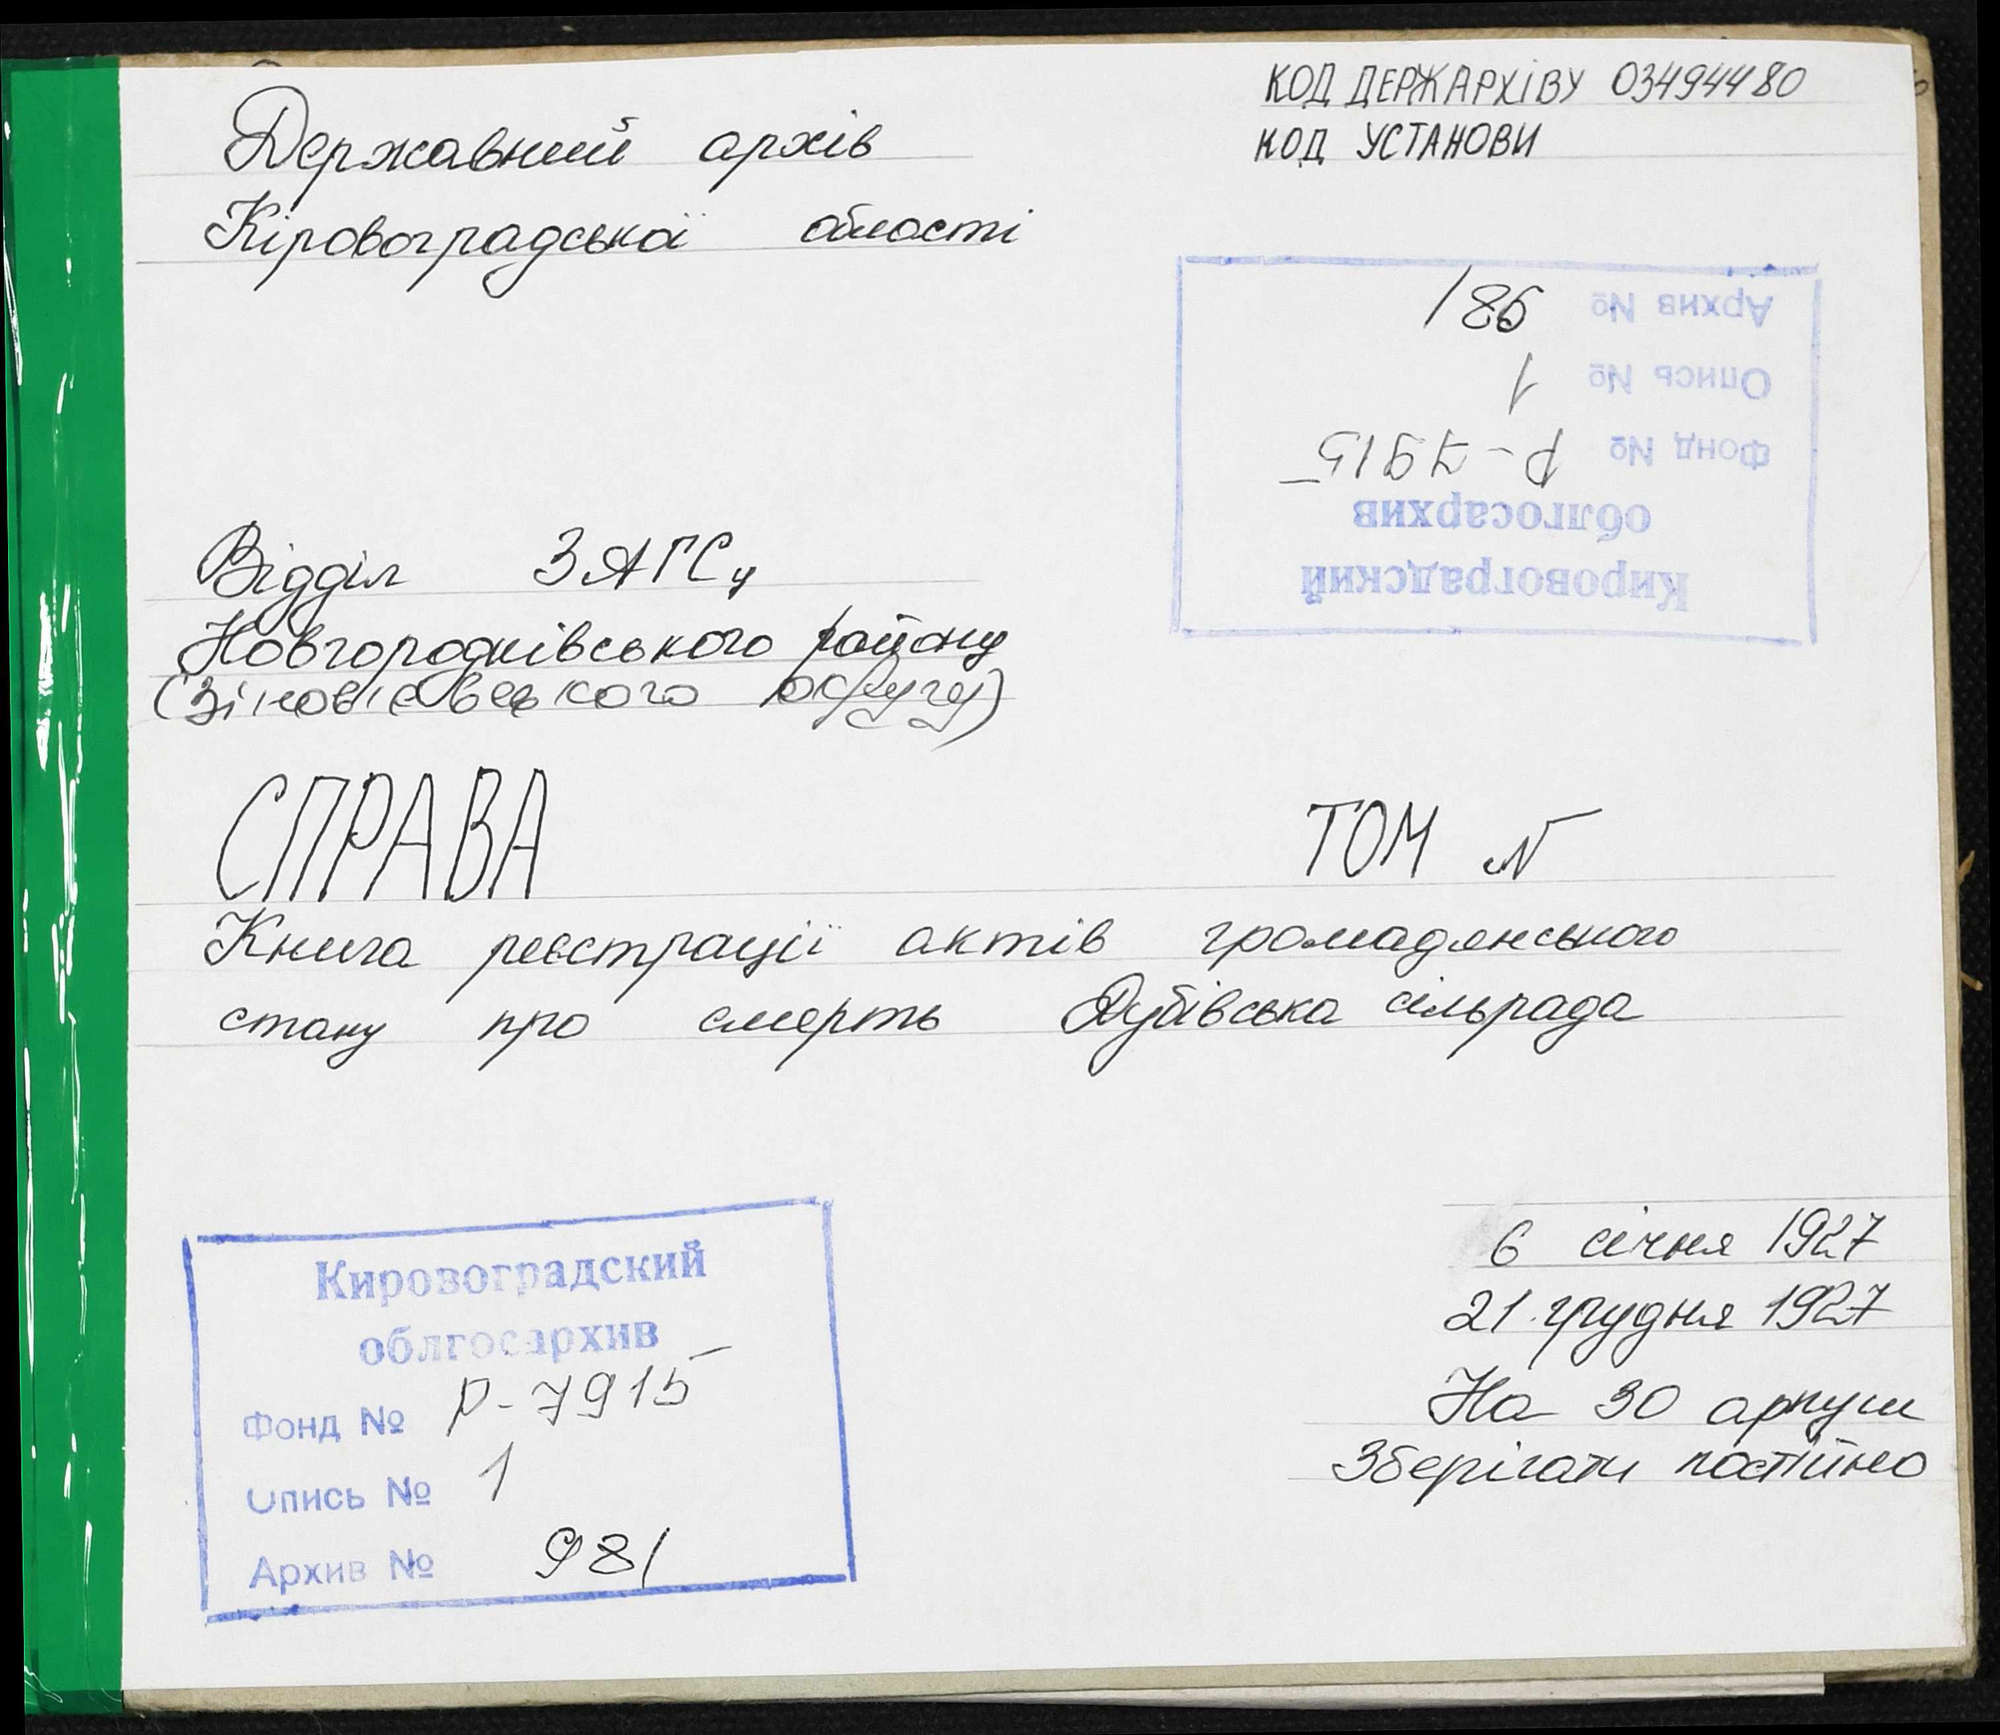 КОД ДЕРЖАРХІВУ 03494480
КОД УСТАНОВИ
Державний архів
Кіровоградської області
Кировоградский
облгосархив
Фонд № Р-7915
Опись № 1
Архив № 981
Відділ ЗАГСу
Новгородківського району
(Зінов'євського округу)
СПРАВА ТОМ №
Книга реєстрації актів громадянського
стану про смерть Дубівська сільрада
6 січня 1927
21 грудня 1927
На 30 аркуш
Зберігати постійно
Кировоградский
облгосархив
Фонд № Р-7915
Опись № 1
Архив № 981